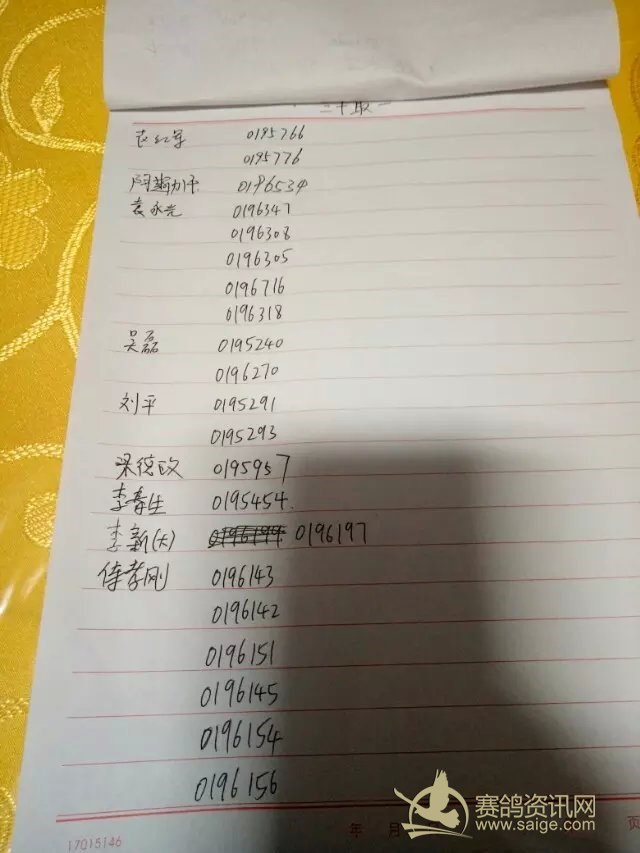 三十取一
袁红军 0195766
0195776
0196534
袁永光 0196347
0196308
0196305
0196716
0196318
吴磊 0195240
0196270
刘平 0195291
0195293
梁德政 0195957
李春生 0195454.
李新(大) 0196197
0196143
0196142
0196151
0196145
0196154
0196156
年 月
页
17015146
赛鸽资讯网
www.saige.com